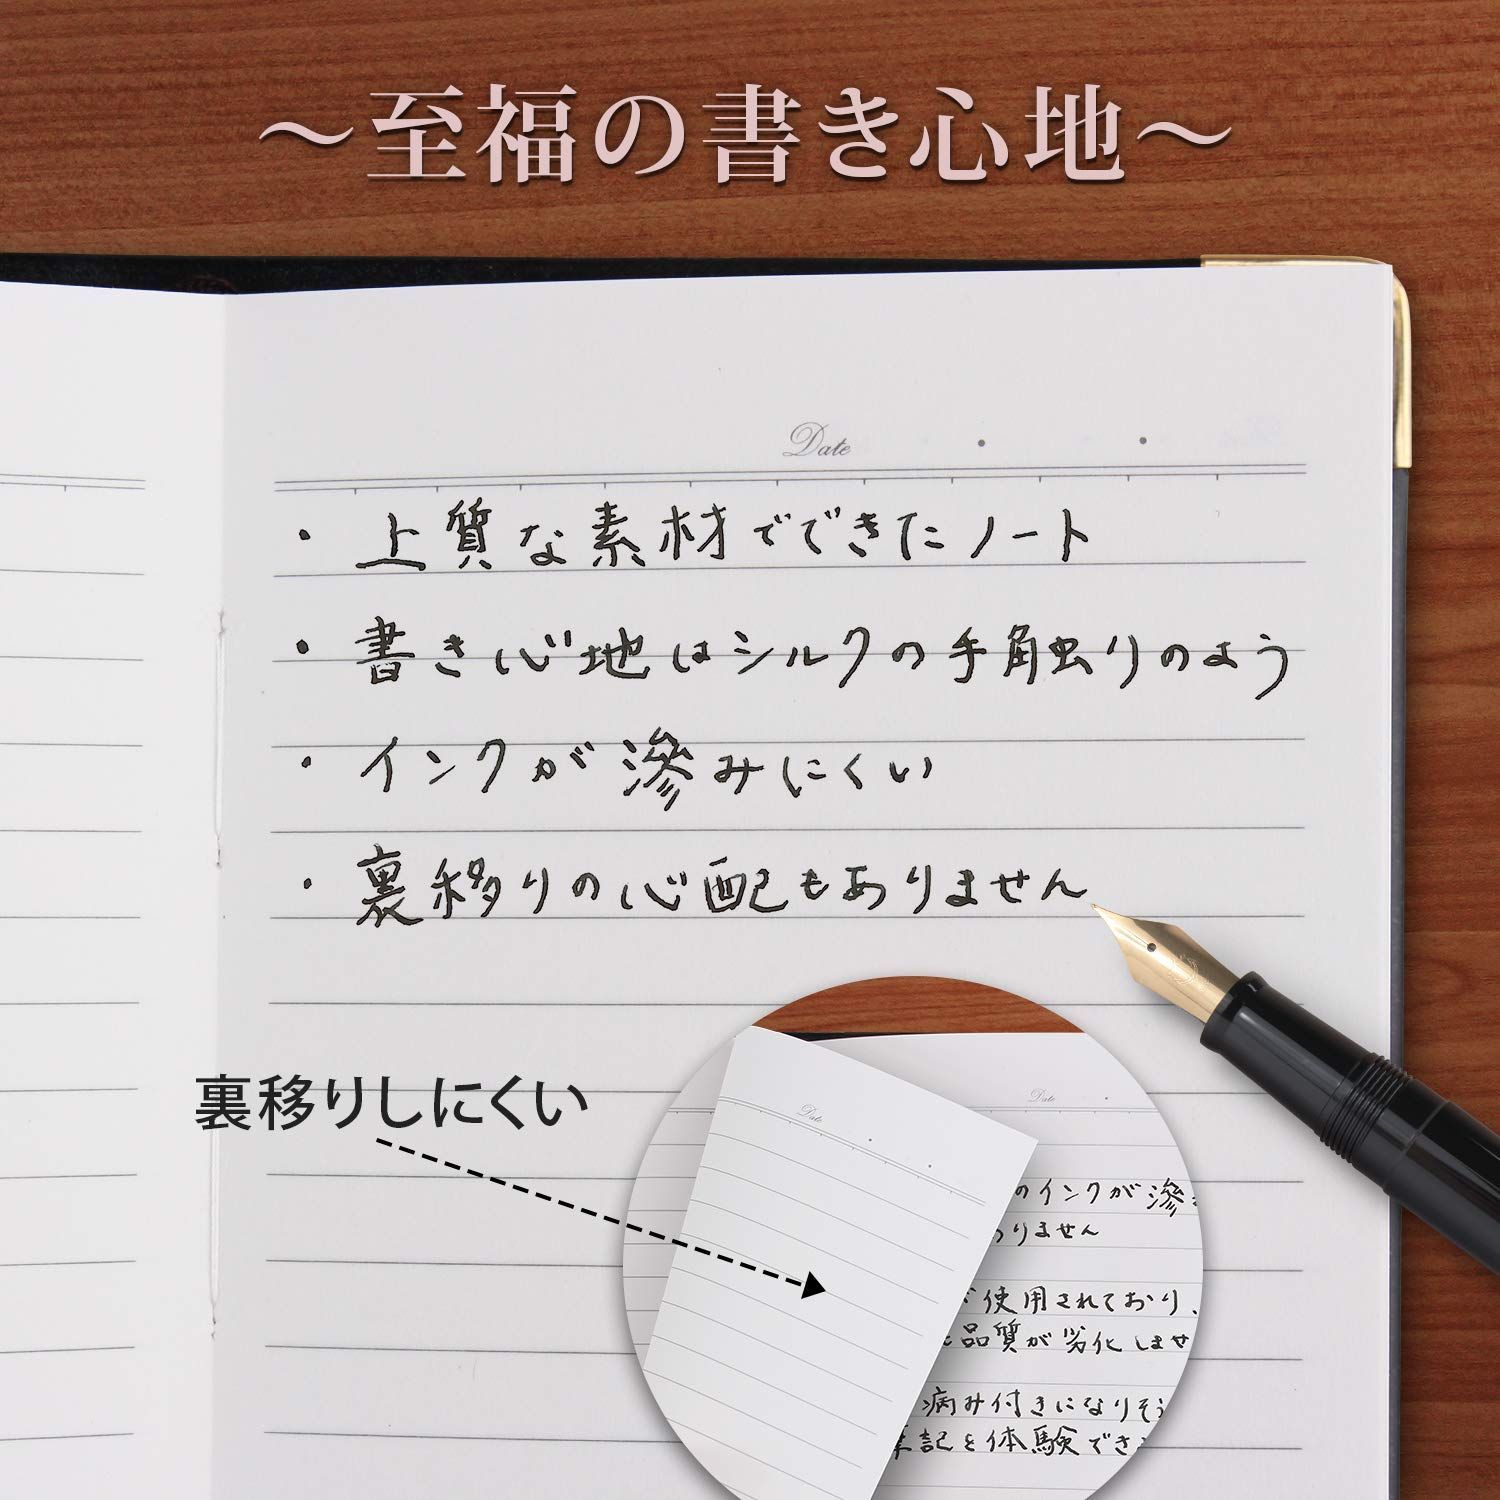 ～至福の書き心地～
Date
・上質な素材でできたノート
・書き心地はシルクの手触りのよう
・インクが滲みにくい
・裏移りの心配もありません
裏移りしにくい
Date
Date
のインクが滲
ありません
使用されており、
品質が劣化しませ
病み付きになりそう
筆記を体験でき